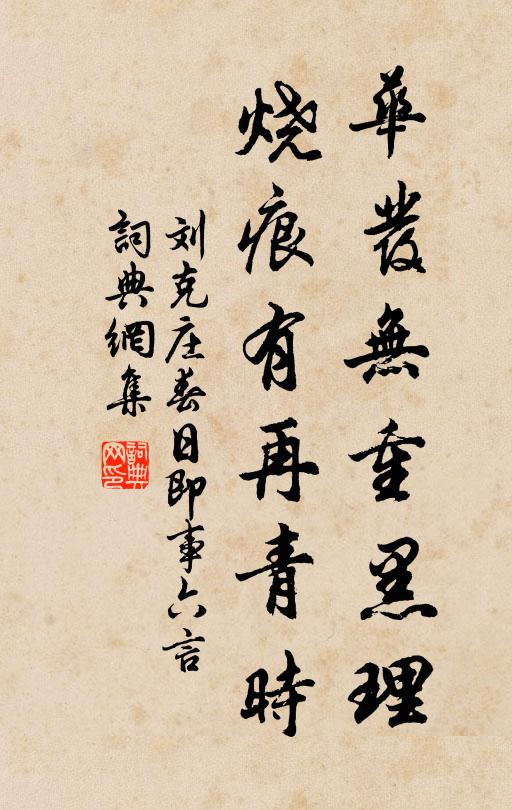 華發無重黑理
烧痕有再青時
刘克庄春日即事六言
詞典網集
詞典网印